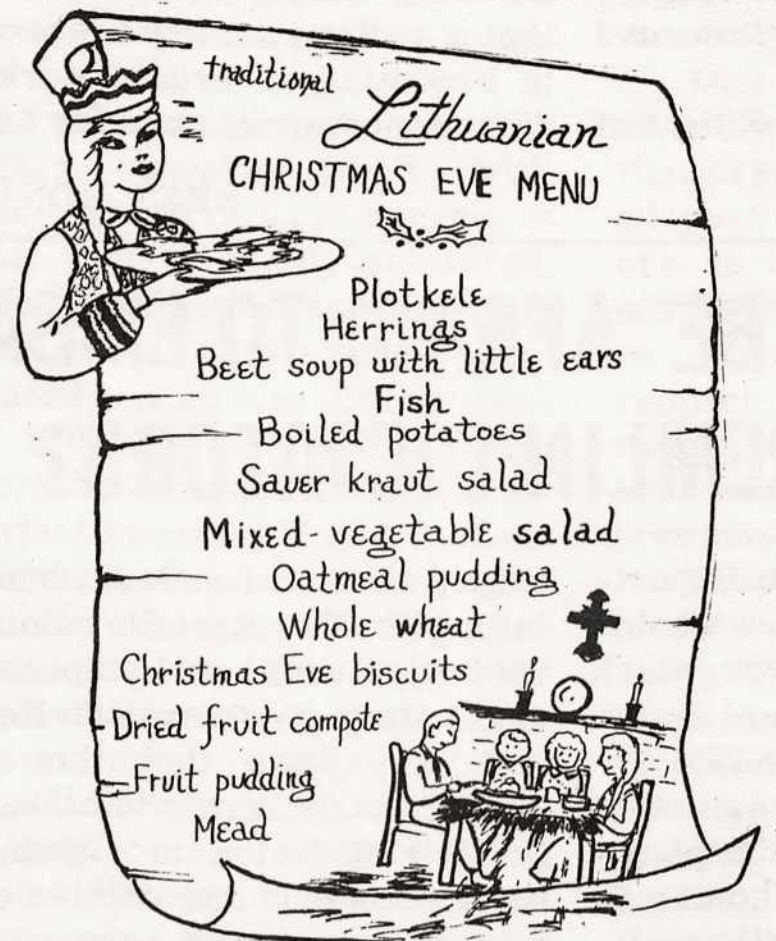 traditional
Lithuanian
CHRISTMAS EVE MENU
Plotkele
Herrings
Beet soup with little ears
Fish
Boiled potatoes
Sauer kraut salad
Mixed-vegetable salad
Oatmeal pudding
Whole wheat
Christmas Eve biscuits
Dried fruit compote
Fruit pudding
Mead